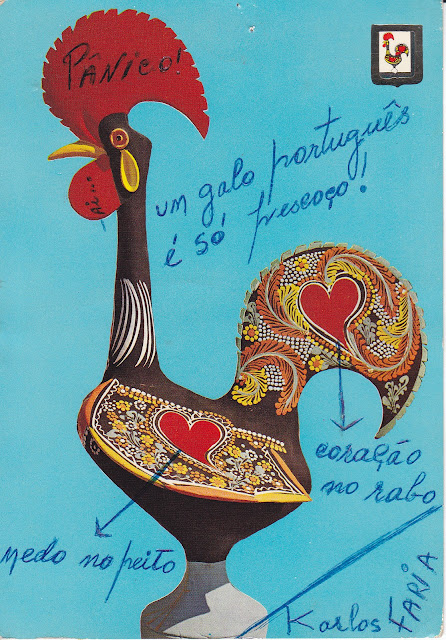 PÂNICO!
Ai...
um galo português
é só pescoço!
coração
no rabo
medo no peito
Karlos FARIA